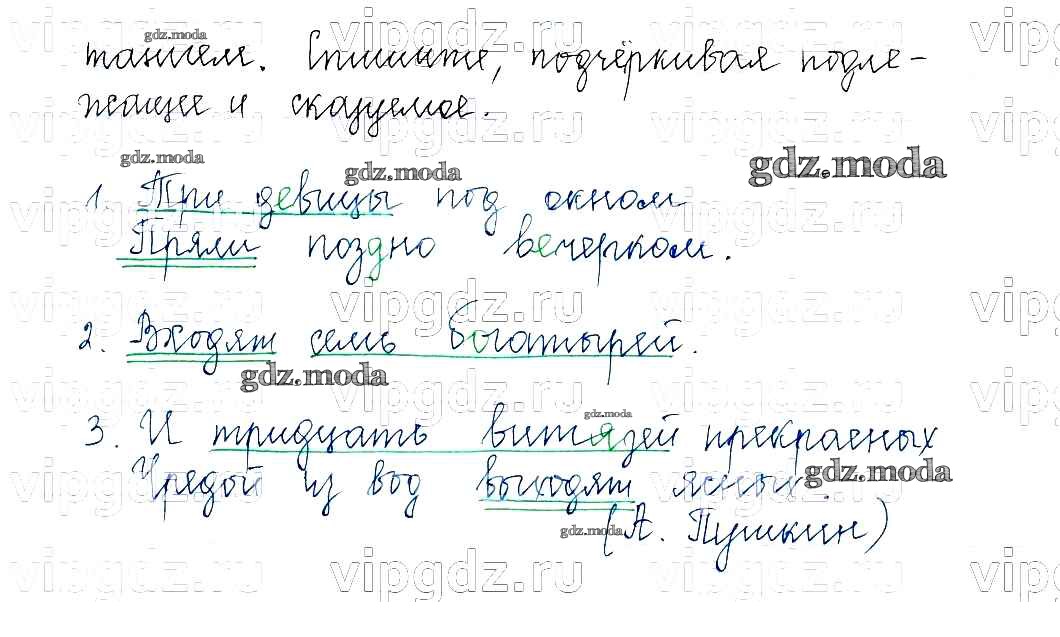 танием. Спишите, подчёркивая подле-
жащее и сказуемое.
1. Три девицы под окном
Пряли поздно вечерком.
2. Входят семь богатырей.
3. И тридцать витязей прекрасных
Чредой из вод выходят ясных.
(А. Пушкин)
gdz.moda
vipgdz.ru